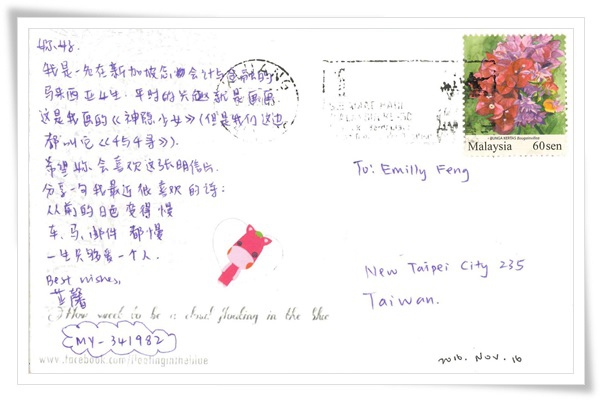 你好.
我是一名在新加坡念会计与金融的
马来西亚女生.平时的兴趣就是画画.
这是我画的《神隐少女》(但是我们这边
都叫它《千与千寻》).
希望你会喜欢这张明信片.
分享一句我最近很喜欢的诗:
从前的日色变得慢
车、马、邮件都慢
一生只够爱一个人.
Best wishes,
馨
How sweet to be a cloud floating in the blue
MY-341982
www.facebook.com/floatinginthblue
BUNGA KERTAS Bougainvillea
Malaysia 60sen
To: Emilly Feng
New Taipei City 235
Taiwan.
2016. Nov. 16